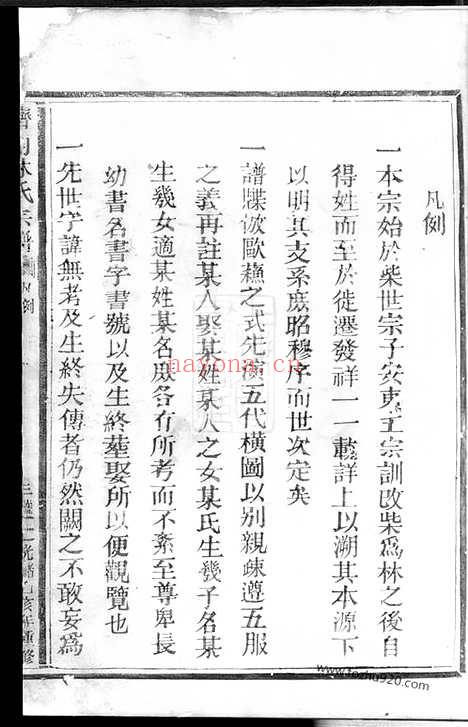 凡例
一本宗始於柴世宗子安東王宗訓改柴為林之後自
得姓而至於徙遷發祥一一載詳上以溯其本源下
以明其支系庶昭穆序而世次定矣
一譜牒倣歐蘓之式先演五代橫圖以别親疎遵五服
之義再註某人娶某姓某人之女某氏生幾子名某
生幾女適某姓某名庶各有所考而不紊至尊卑長
幼書名書字書號以及生終塟娶所以便觀覽也
一先世字諱無考及生終失傳者仍然闕之不敢妄為
林氏宗譜
凡例
光緒乙亥年重修
nayona.cn
www.tozhu920.com